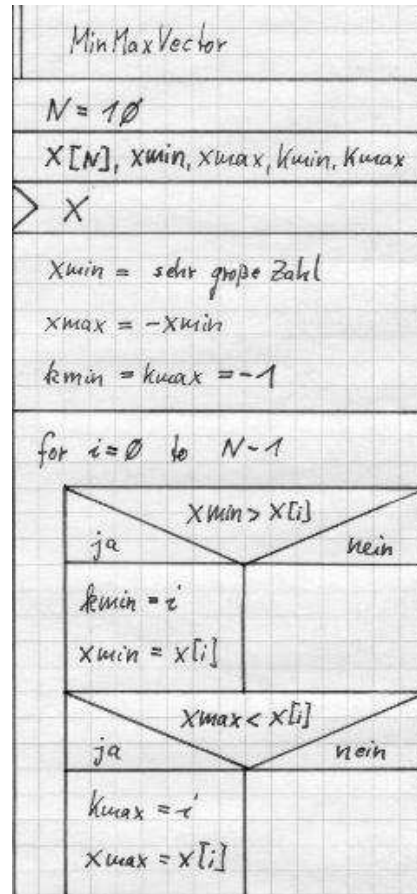 MinMaxVector
N = 10
X[N], xmin, xmax, Kmin, Kmax
X
xmin = sehr große Zahl
xmax = -xmin
kmin = kmax = -1
for i=0 to N-1
xmin > x[i]
ja nein
kmin = i
xmin = x[i]
xmax < x[i]
ja nein
Kmax = i
xmax = x[i]